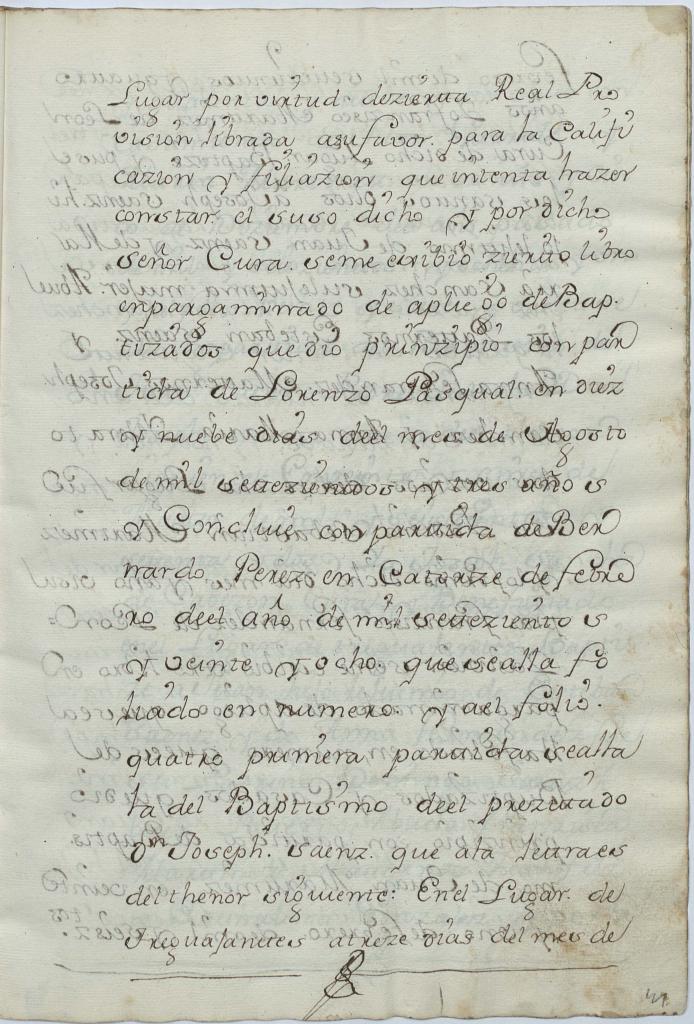 Lugar por virtud dezierta Real Pro
vision librada asufavor. para la Califi
cazion y filiazion que intenta hazer
constar el suso dicho y por dicho
señor Cura. seme exibió zierto libro
enpargaminado de apliego de Bap.
tizados que dio prinzipio con par
tida de Lorenzo Pasqual en diez
y nuebe dias deel mes de Agosto
de mil setezientos y tres años
y Concluie con partida de Ber
nardo Perez en Catorze de febre
ro deel año de mil setezientos
y veinte y ocho. que sealla fo
liado en numero. y ael folio.
quatro primera partida sealla
la del Baptismo deel prezitado
Dn Joseph. saenz. que ala letra es
del thenor siguiente: Enel Lugar. de
Treguajantes atreze dias del mes de
49